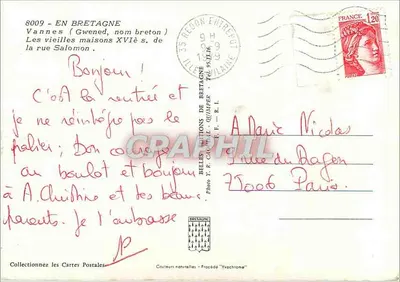 8009 - EN BRETAGNE
Vannes (Gwened, nom breton)
Les vieilles maisons XVIè s. de
la rue Salomon.
Bonjour!
C'est la rentrée et
je ne réintègre pas le
palier; Bon courage
au boulot et bonjour
à A. Christine et tes beaux
parents. Je t'embrasse
35 REDON ENTREPOT
ILLE ET VILAINE
FRANCE
1,20
BELLES EDITIONS DE BRETAGNE
A Marie Nicolas
rue du Dragon
75006 Paris
BRETAGNE
Collectionnez les Cartes Postales
Couleurs naturelles - Procédé "Yvachrome"